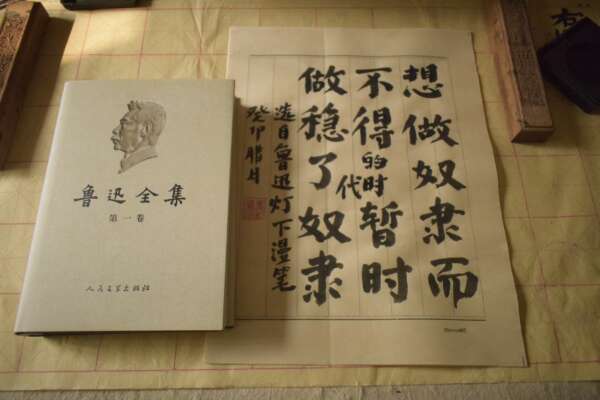 鲁迅全集
第一卷
人民文学出版社
想做奴隶而
不得的时代暂时
做稳了奴隶
选自鲁迅灯下漫笔
癸卯腊月